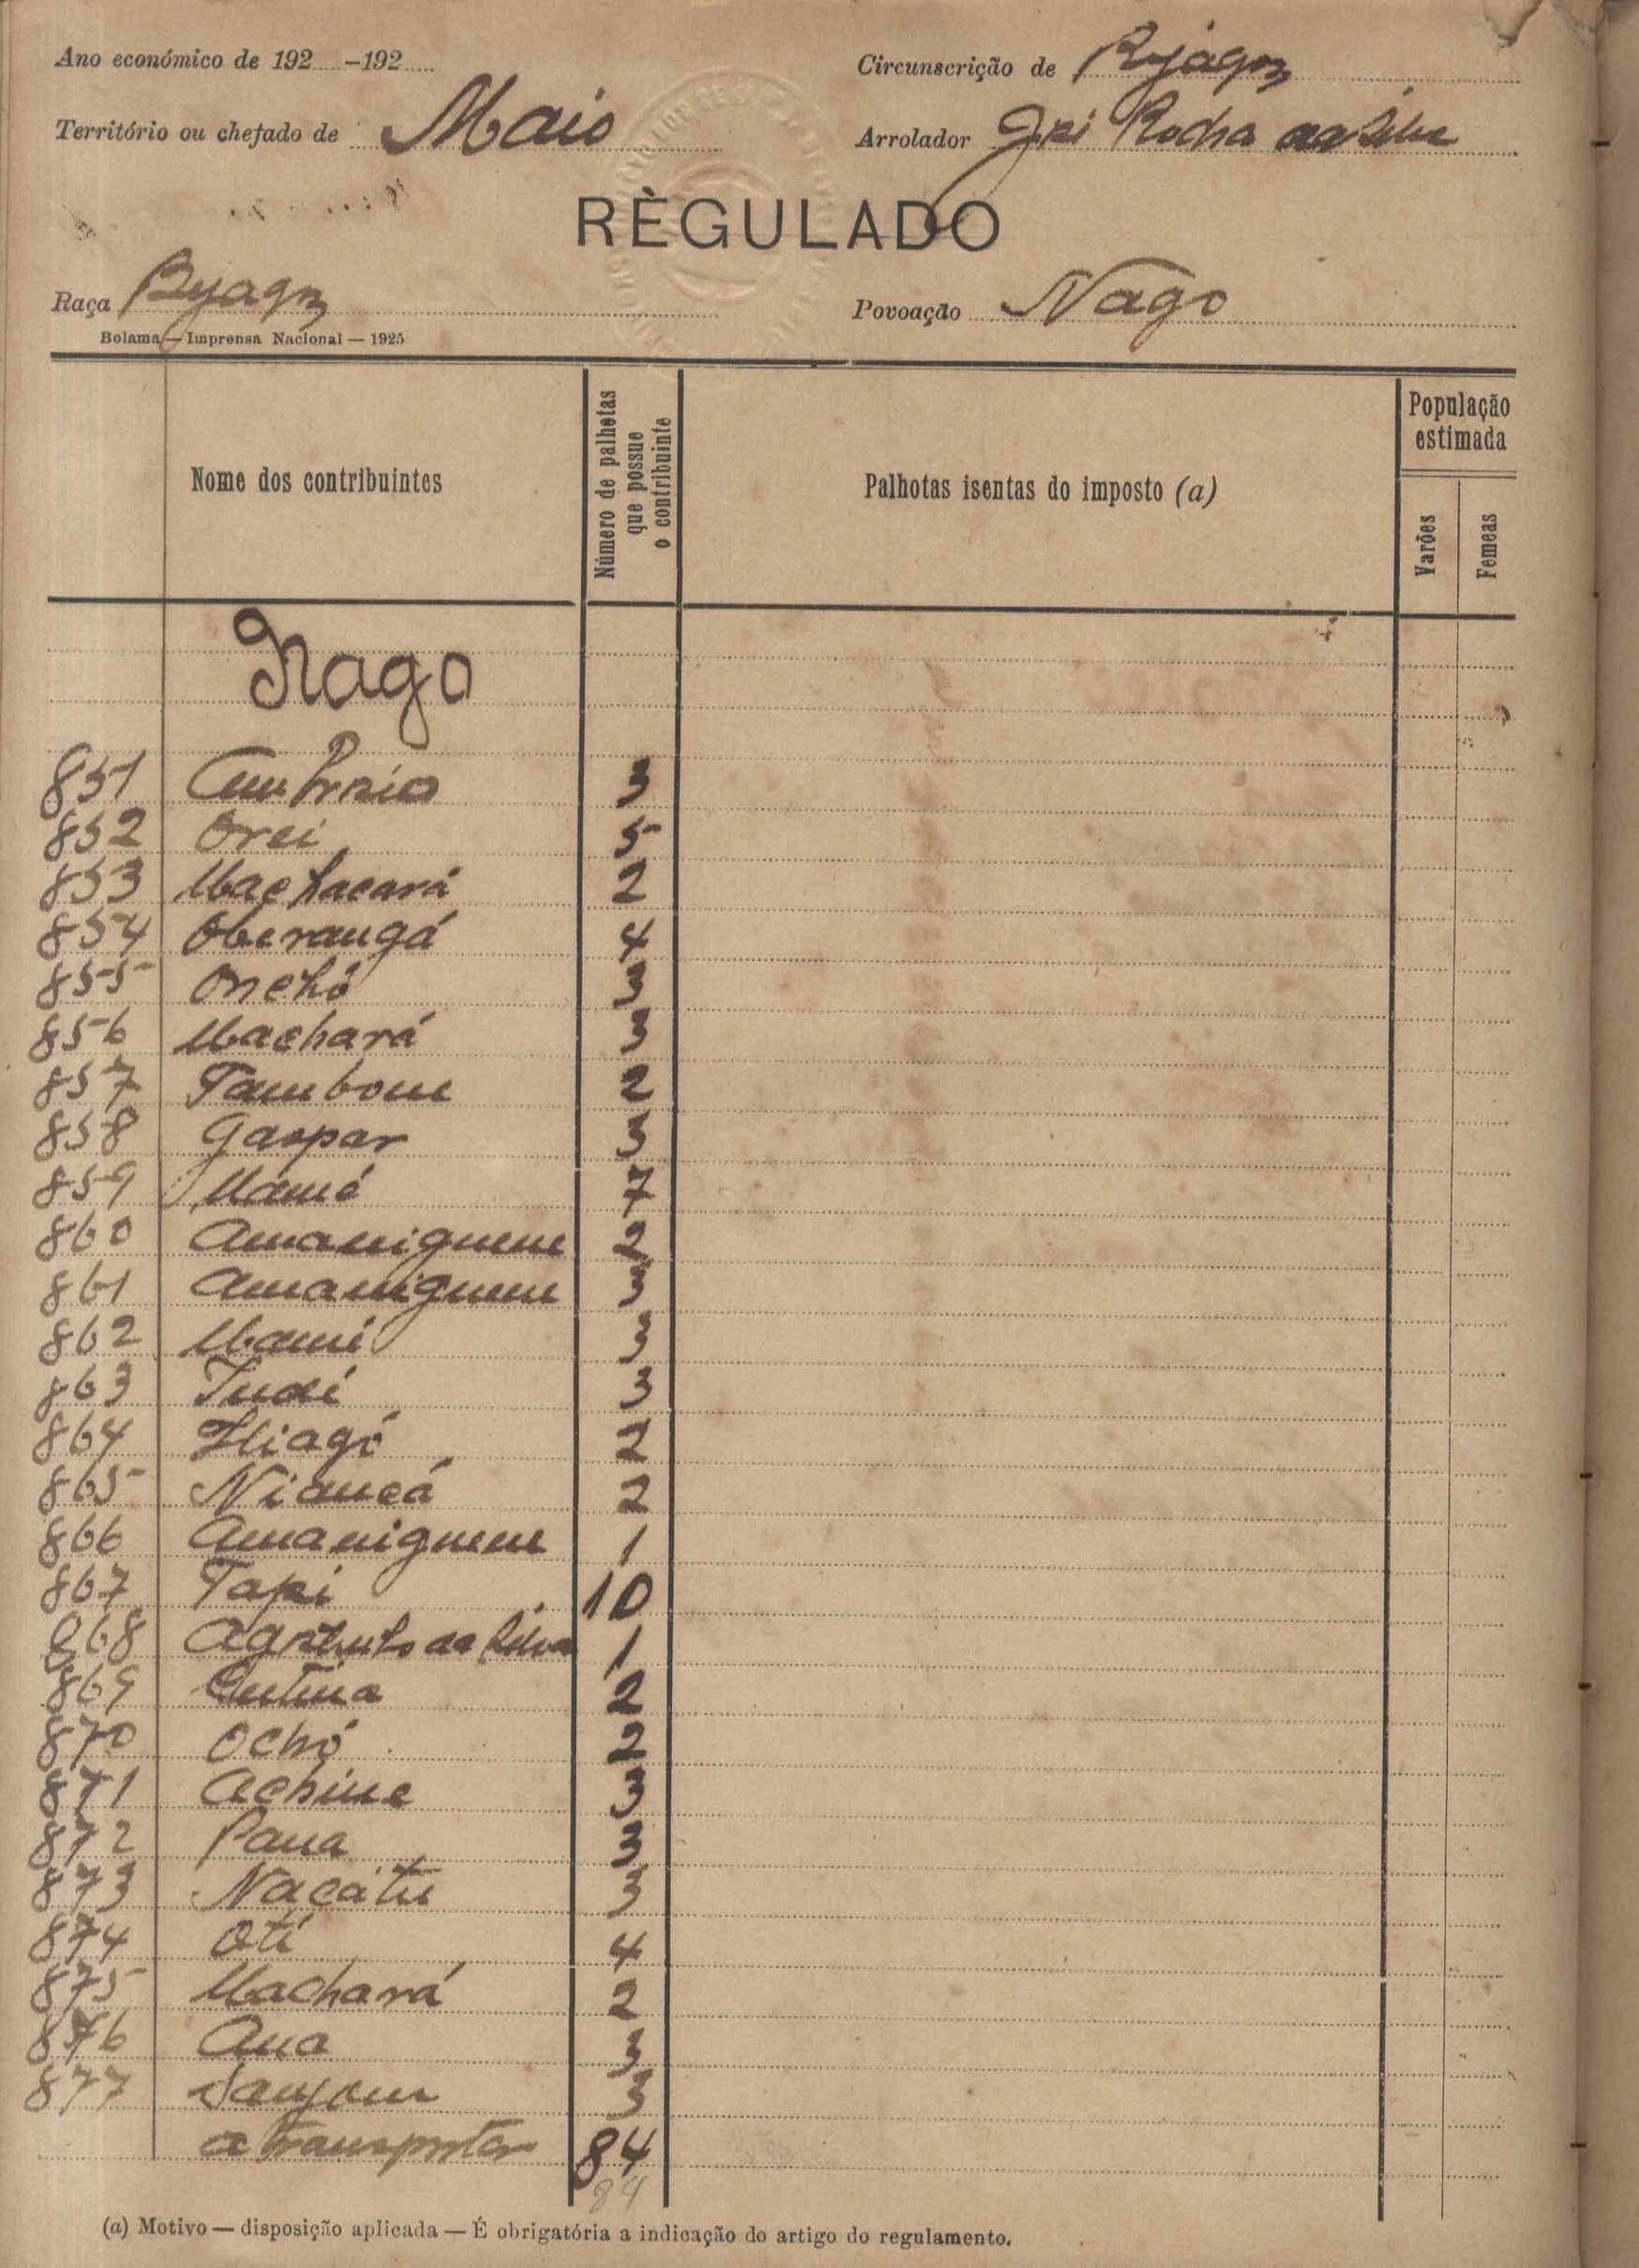 Ano económico de 192 -192
Circunscrição de Byagoz
Território ou chefado de Maio
Arrolador José Rocha da Silva
RÈGULADO
Raça Byagoz
Povoação Nago
Bolama — Imprensa Nacional — 1925
Nome dos contribuintes
Número de palhotas que possue o contribuinte
Palhotas isentas do imposto (a)
População estimada
Varões
Femeas
Nago
851 3
852 Orei 5
853 2
854 Oberangá 4
855 Onchó 3
856 Machará 3
857 Tambom 2
858 Gaspar 3
859 Mamé 7
860 Amaniguem 2
861 Amaniguem 3
862 3
863 3
864 2
865 Niancá 2
866 Amaniguem 1
867 10
868 da Silva 1
869 2
870 Ochó 2
871 Achine 3
872 Pana 3
873 Nacátu 3
874 Oti 4
875 Machará 2
876 Ana 3
877 3
a transportar 84
84
(a) Motivo — disposição aplicada — É obrigatória a indicação do artigo do regulamento.